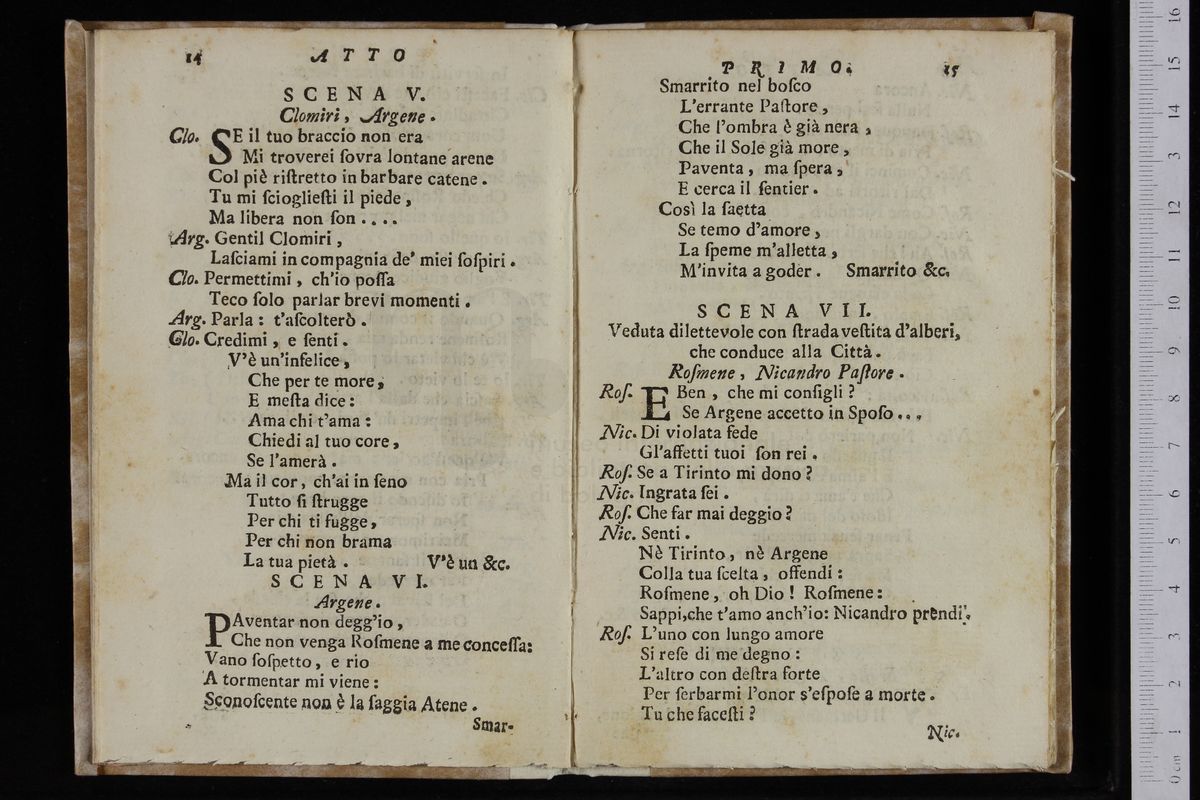 14 ATTO
SCENA V.
Clomiri, Argene.
Clo. SE il tuo braccio non era
Mi troverei ſovra lontane arene
Col piè riſtretto in barbare catene.
Tu mi ſciogliesti il piede,
Ma libera non ſon....
Arg. Gentil Clomiri,
Laſciami in compagnia de' miei ſoſpiri.
Clo. Permettimi, ch'io poſſa
Teco ſolo parlar brevi momenti.
Arg. Parla: t'aſcolterò.
Clo. Credimi, e ſenti.
V'è un'infelice,
Che per te more,
E meſta dice:
Ama chi t'ama:
Chiedi al tuo core,
Se l'amerà.
Ma il cor, ch'ai in ſeno
Tutto ſi ſtrugge
Per chi ti fugge,
Per chi non brama
La tua pietà. V'è un &c.
SCENA VI.
Argene.
PAventar non degg'io,
Che non venga Roſmene a me conceſſa:
Vano ſoſpetto, e rio
A tormentar mi viene:
Sconoſcente non è la ſaggia Atene.
Smar-
PRIMO. 15
Smarrito nel boſco
L'errante Paſtore,
Che l'ombra è già nera,
Che il Sole già more,
Paventa, ma ſpera,
E cerca il ſentier.
Così la ſaetta
Se temo d'amore,
La ſpeme m'alletta,
M'invita a goder. Smarrito &c.
SCENA VII.
Veduta dilettevole con ſtrada veſtita d'alberi,
che conduce alla Città.
Roſmene, Nicandro Paſtore.
Roſ. EBen, che mi conſigli?
Se Argene accetto in Spoſo...
Nic. Di violata fede
Gl'affetti tuoi ſon rei.
Roſ. Se a Tirinto mi dono?
Nic. Ingrata ſei.
Roſ. Che far mai deggio?
Nic. Senti.
Nè Tirinto, nè Argene
Colla tua ſcelta, offendi:
Roſmene, oh Dio! Roſmene:
Sappi,che t'amo anch'io: Nicandro prendi.
Roſ. L'uno con lungo amore
Si reſe di me degno:
L'altro con deſtra forte
Per ſerbarmi l'onor s'eſpoſe a morte.
Tu che faceſti?
Nic.